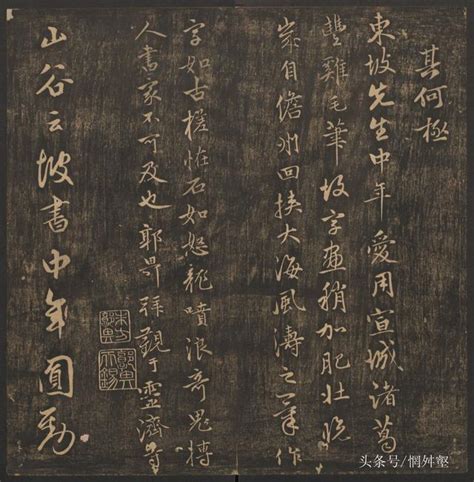 其何極
東坡先生中年愛用宣城諸葛
豐雞毛筆故字畫稍加肥壯晚
歲自儋州回挾大海風濤之氣作
字如古槎怪石如怒龍噴浪奇鬼搏
人書家不可及也郭畀拜觀于靈濟寺
山谷云坡書中年圓勁
头条号/惘舛壑